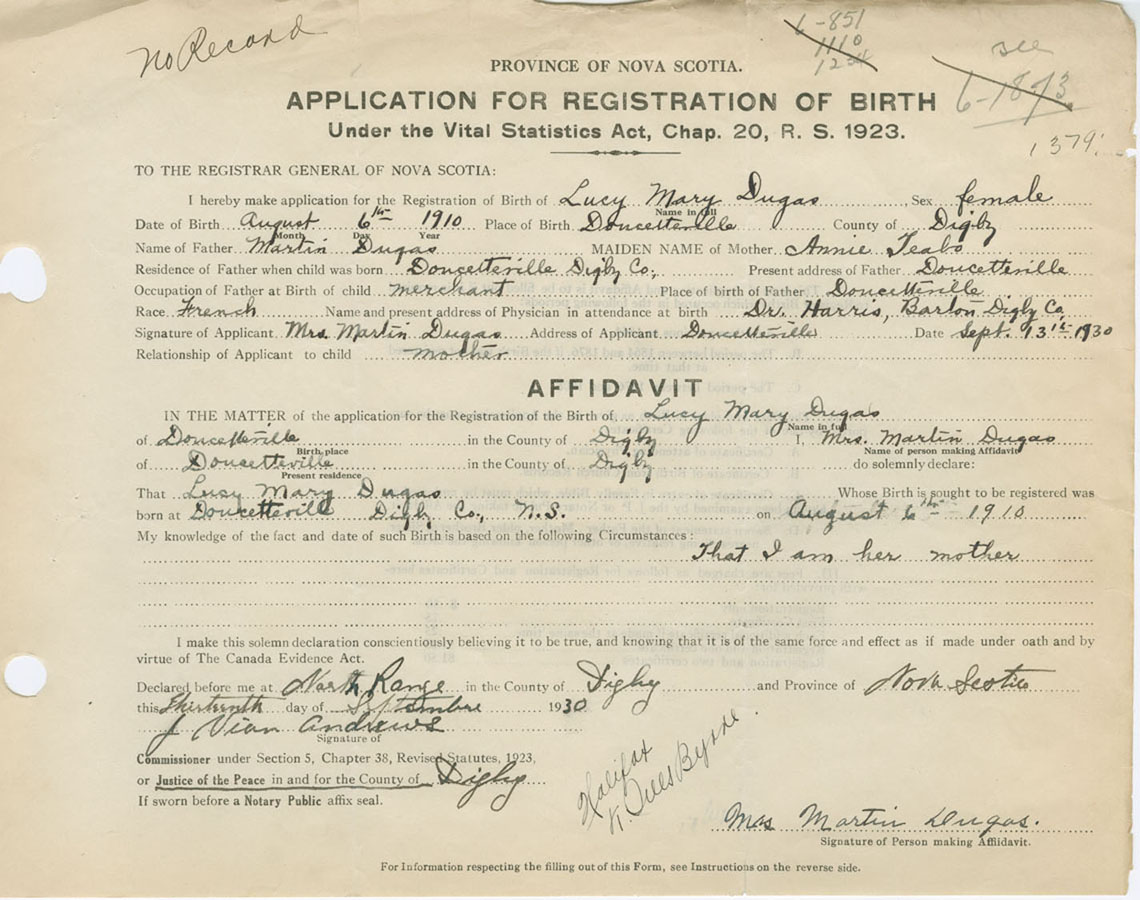 no Record
6-851
1110
1234
see
6-1873
1379
PROVINCE OF NOVA SCOTIA.
APPLICATION FOR REGISTRATION OF BIRTH
Under the Vital Statistics Act, Chap. 20, R. S. 1923.
TO THE REGISTRAR GENERAL OF NOVA SCOTIA:
I hereby make application for the Registration of Birth of Lucy Mary Dugas Sex female
Name in full
Date of Birth August 6th 1910 Place of Birth Doucetteville County of Digby
Month Day Year
Name of Father Martin Dugas MAIDEN NAME of Mother Annie Teabo
Residence of Father when child was born Doucetteville Digby Co., Present address of Father Doucetteville
Occupation of Father at Birth of child merchant Place of birth of Father Doucetteville
Race French Name and present address of Physician in attendance at birth Dr. Harris, Barton Digby Co.
Signature of Applicant Mrs. Martin Dugas Address of Applicant Doucetteville Date Sept. 13th 1930
Relationship of Applicant to child mother
AFFIDAVIT
IN THE MATTER of the application for the Registration of the Birth of Lucy Mary Dugas
Name in full
of Doucetteville in the County of Digby I, Mrs. Martin Dugas
Birth place Name of person making Affidavit
of Doucetteville in the County of Digby do solemnly declare:
Present residence
That Lucy Mary Dugas Whose Birth is sought to be registered was
born at Doucetteville Digby Co., N.S. on August 6th 1910
My knowledge of the fact and date of such Birth is based on the following Circumstances:
That I am her mother
I make this solemn declaration conscientiously believing it to be true, and knowing that it is of the same force and effect as if made under oath and by
virtue of The Canada Evidence Act.
Declared before me at North Range in the County of Digby and Province of Nova Scotia
this thirteenth day of Septembre 1930
J Vian Andrews
Signature of
Commissioner under Section 5, Chapter 38, Revised Statutes, 1923,
or Justice of the Peace in and for the County of Digby
If sworn before a Notary Public affix seal.
Halifax
Byrne
Mrs Martin Dugas.
Signature of Person making Affidavit.
For Information respecting the filling out of this Form, see Instructions on the reverse side.